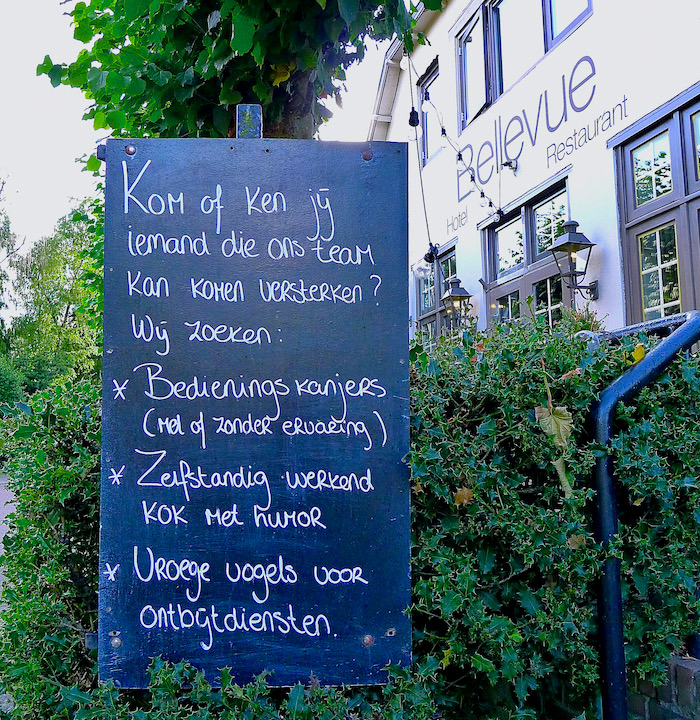 Kom of ken jij
iemand die ons team
kan komen versterken?
Wij zoeken:
* Bedieningskanjers
(met of zonder ervaring)
* Zelfstandig werkend
kok met humor
* Vroege vogels voor
ontbijtdiensten.
Bellevue
Hotel Restaurant